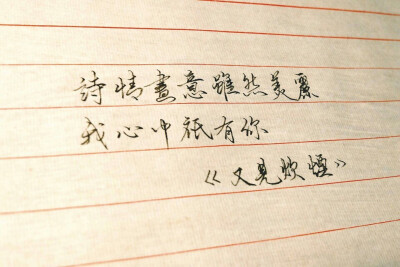 詩情畫意雖然美麗
我心中祇有你
《又見炊煙》